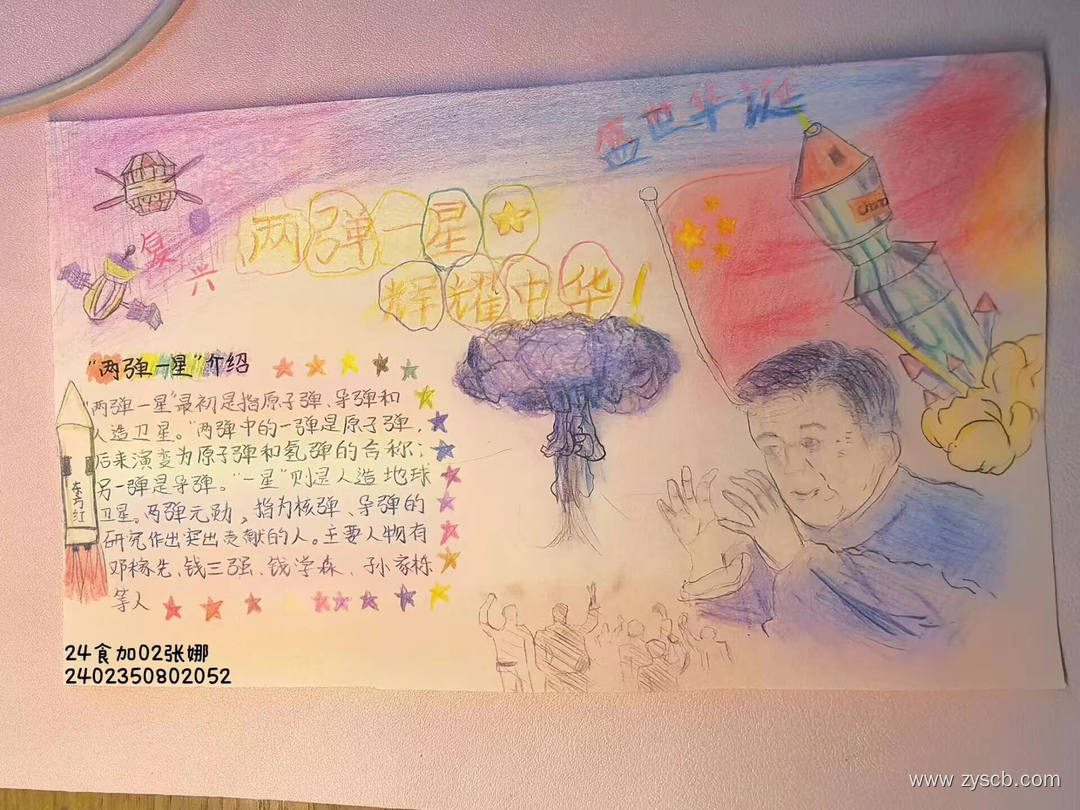 盛世华诞
China
复兴
两弹一星
辉耀中华！
"两弹一星"介绍
"两弹一星"最初是指原子弹、导弹和
人造卫星。"两弹中的一弹是原子弹，
后来演变为原子弹和氢弹的合称；
另一弹是导弹。"一星"则是人造地球
卫星。两弹元勋，指为核弹、导弹的
研究作出突出贡献的人。主要人物有
邓稼先、钱三强、钱学森、孙家栋
等人
东方红
24食加02张娜
2402350802052
www.zyscb.com